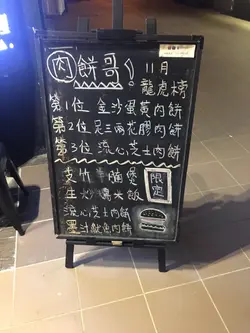 肉餅哥! 11月
龍虎榜
第1位 金沙蛋黃肉餅
第2位 足三兩花膠肉餅
第3位 流心芝士肉餅
支竹羊腩煲
生炒糯米飯
限定
流心芝士肉餅
墨汁魷魚肉餅